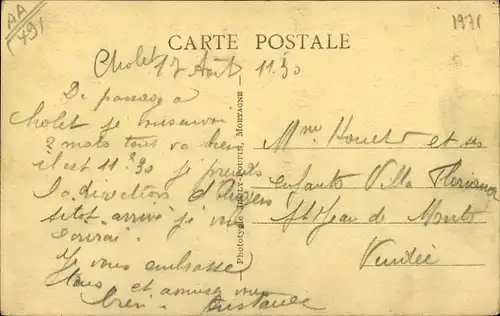 AA
491
1971
CARTE POSTALE
Cholet 17 Août 11.30
De passage a
Cholet je
2 mots tout va bien
il est 11h30 je prends
la direction d'Angers
sitot arrivé je vous
écrirai.
Je vous embrasse
tous et amusez vous
bien.
Phototype MORTAGNE
Mme et ses
enfants Villa
St Jean de Monts
Vendée